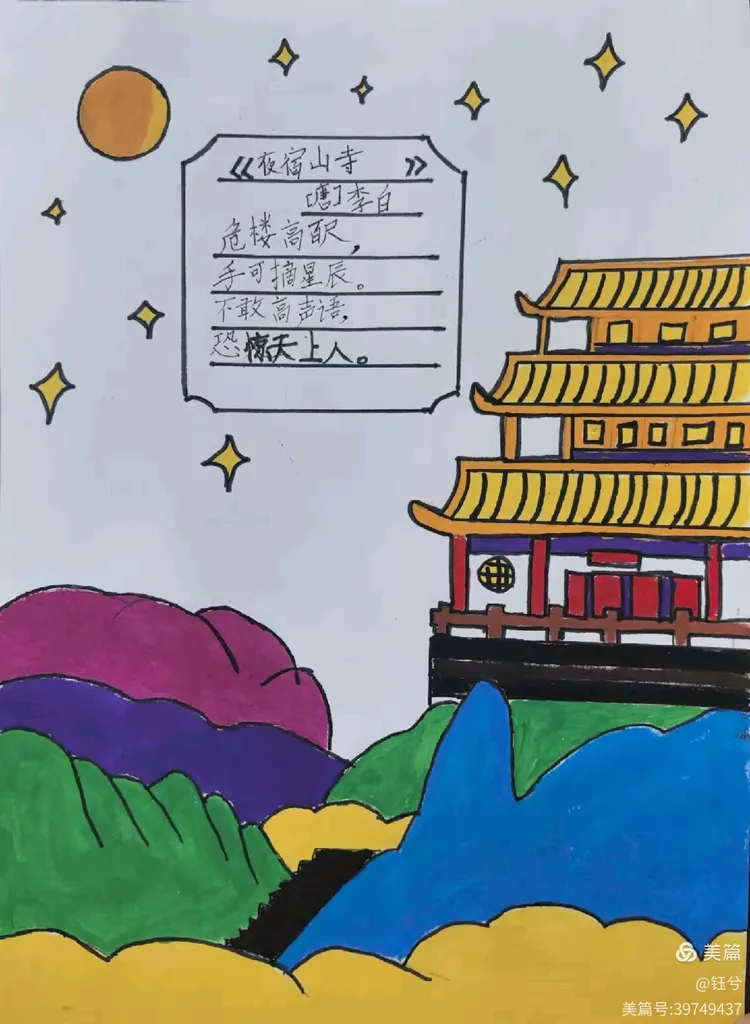 《夜宿山寺》
[唐]李白
危楼高百尺，
手可摘星辰。
不敢高声语，
恐惊天上人。
美篇
@钰兮
美篇号:39749437